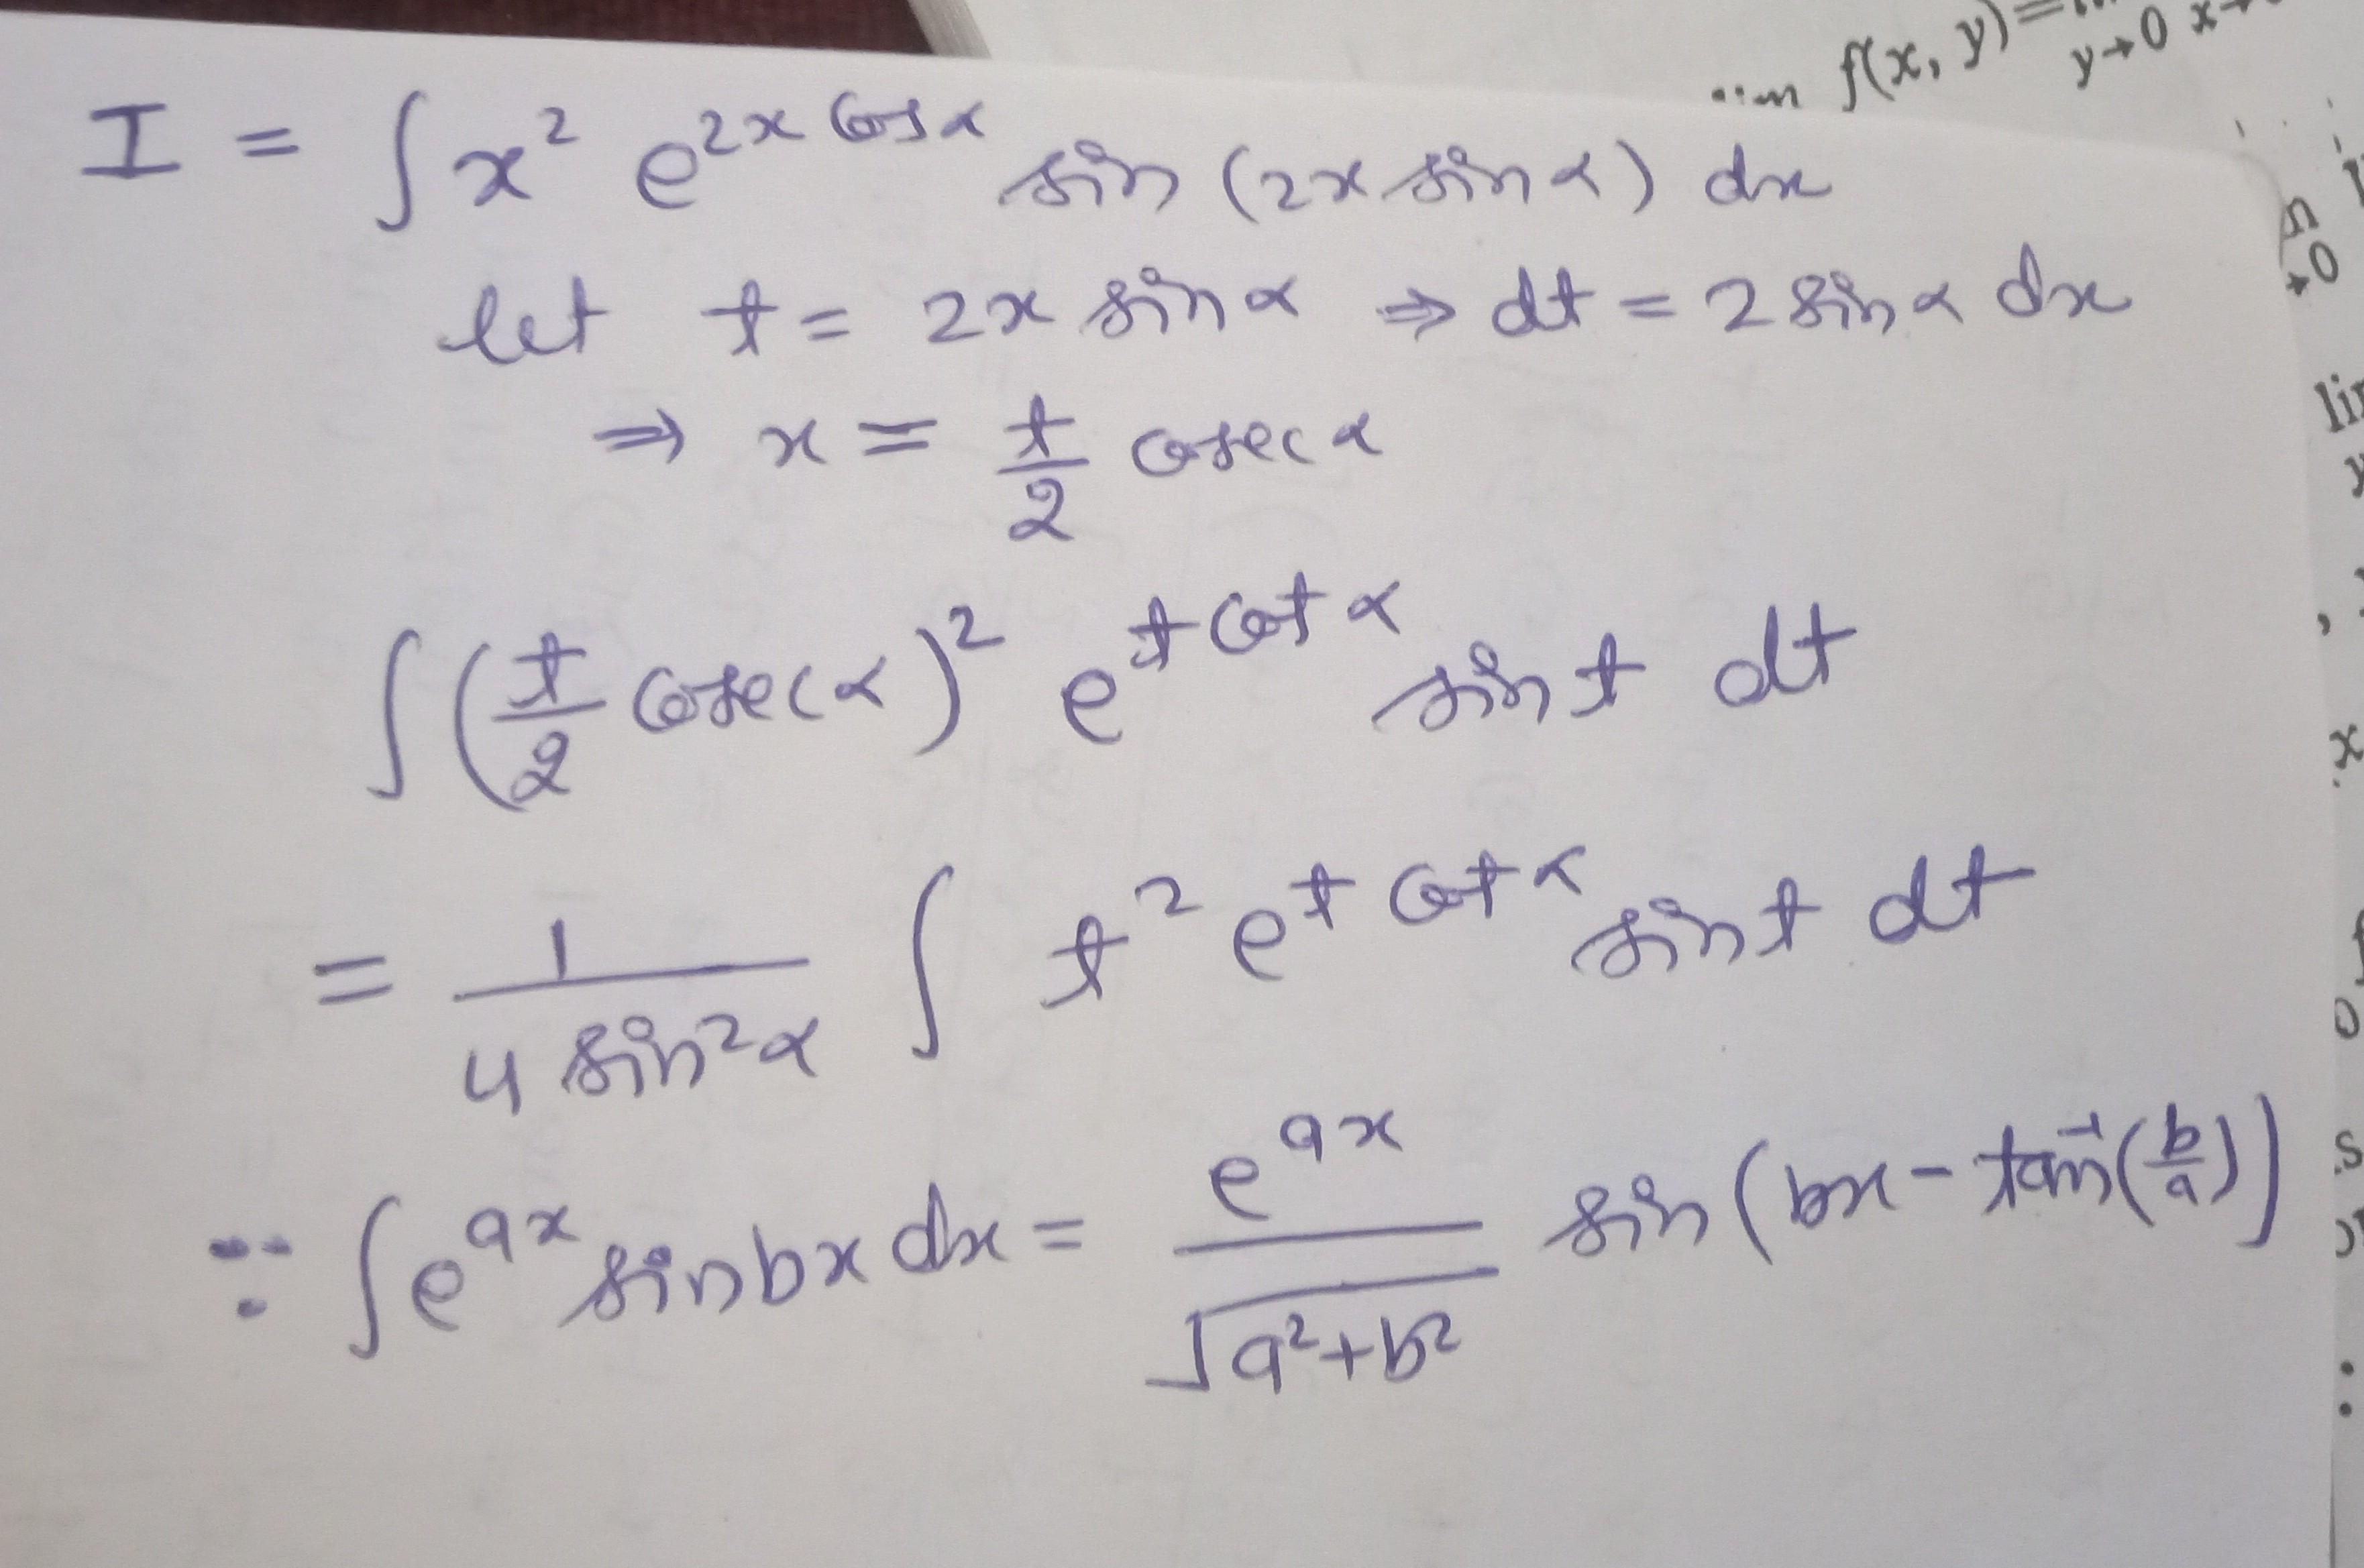 I = ∫ x² e^{2x cos α} sin (2x sin α) dx
let t = 2x sin α ⇒ dt = 2 sin α dx
⇒ x = t/2 cosec α
∫ (t/2 cosec α)² e^{t cot α} sin t dt
= 1/(4 sin² α) ∫ t² e^{t cot α} sin t dt
∵ ∫ e^{ax} sin bx dx = e^{ax}/√(a²+b²) sin (bx - tan⁻¹(b/a))
f(x, y) =
y→0 x→